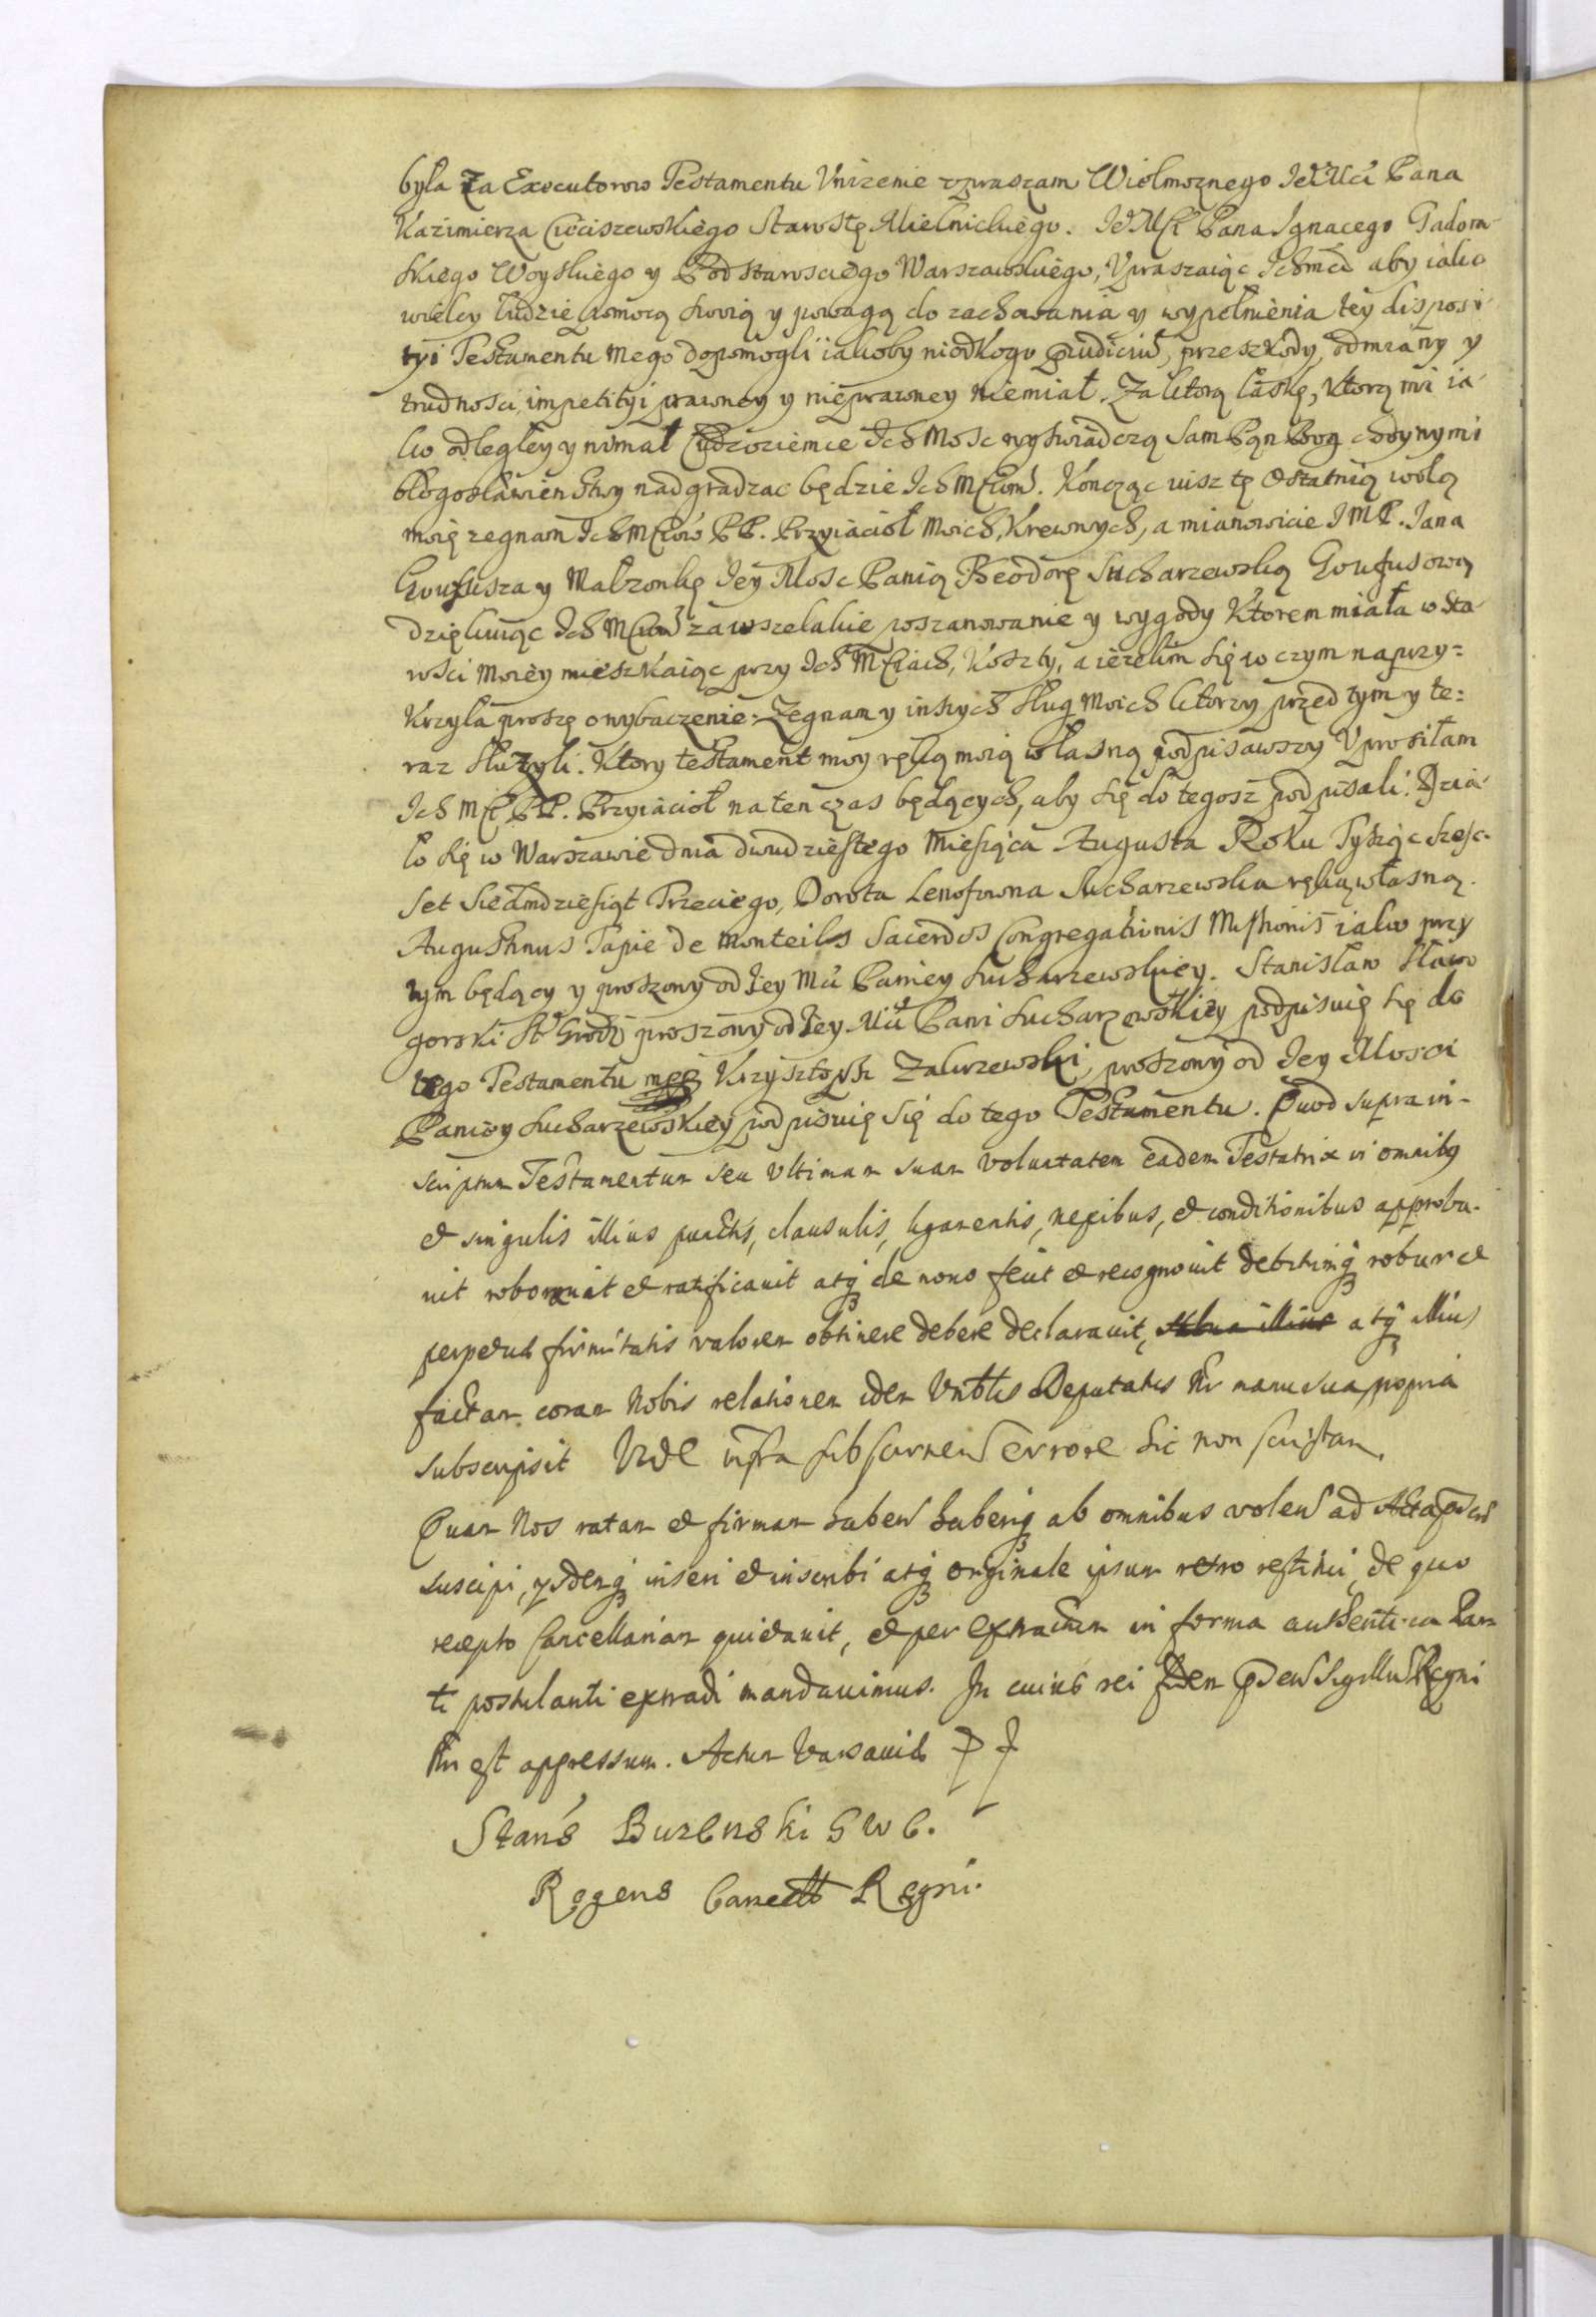 była Za Executorow Testamentu Vnizenie vpraszam Wielmoznego Je Mci Pana
Kazimierza Cieciszewskiego Starostę Mielnickiego. Je Mci Pana Ignacego Gadom-
skiego Woyskiego y Podstarosciego Warszawskiego, Vpraszaiąc Ichmci aby iako
wielcy ludzie pomocą swoią y powagą do zachowania y wypełnienia tey disposi-
tyi Testamentu mego dopomogli iakoby niodkogo prudiciu, przeszkody, odmiany y
trudnosci, impetityi prawney y nieprawney niemiał. Za ktorą łaskę, ktorą mi ia-
ko odległey y nimal Cudzoziemce Ich Mosc wyswiadczą Sam Pan Bog
błogosławienstwy nadgradzac będzie Ich Mciom. Kończąc uisz tę Ostatnią wolą
moię zegnam Ich Mciow PP. Przyiacioł Moich, Krewnych, a mianowicie J M P. Jana
y Małzonkę Jey Mosc Panią Theodorę Sucharzewską
dziękuiąc Ich Mciom za wszelakie poszanowanie y wygody Ktorem miała w Sta-
rości Moiey mieszkaiąc przy Ich Mciach, Koszty, a iezelim się w czym naprzy=
Krzyła proszę o wybaczenie. Zegnam y inszych sług Moich ktorzy przed tym y te=
raz słuzyli. Ktory testament moy ręką moią własną podpisawszy Vprosiłam
Ich Mci PP. Przyiacioł na ten czas będących, aby się do tegosz podpisali. Dzia-
ło się w Warszawie dnia dwudziestego Miesiąca Augusta Roku Tysiąc szesc-
set Siedmdziesiąt Trzeciego, Dorota Lenofowna Sucharzewska ręką własną.
Augustinus Tapie de Monteils Sacerdos Congregationis Missionis iako przy
tym będący y proszony od Jey Mci Paniey Sucharzewskiey. Stanisław Sławo
gorski proszony od Jey Mci Pani Sucharzewskiey podpisuię się do
tego Testamentu Krzysztoph Zakrzewski, proszony od Jey Mosci
Paniey Sucharzewskiey podpisuię się do tego Testamentu. Quod supra in-
scriptum Testamentum seu Vltimam suam voluntatem eadem Testatrix in omnibus
et singulis illius punctis, clausulis, ligamentis, nexibus, et conditionibus approba-
uit roborauit et ratificauit atq de nouo fecit et recognouit debitumq robur et
perpetuae firmitatis valorem obtinere debere declarauit, atq illius
factam coram Nobis relationem idem Deputatus manu sua propria
subscripsit Vide infra errore hic non scriptam.
Quam Nos ratam et firmam haben haberiq ab omnibus volen ad Acta
suscipi, inseri et inscribi atq originale ipsum retro restitui, de quo
recepto Cancellariam quietauit, et per extractum in forma authentica Par
ti postulanti extradi mandauimus. In cuius rei fidem Sigillum Regni
est appressum. Actum Varsauiae
Stans Buzenski
Regens Cancell Regni.